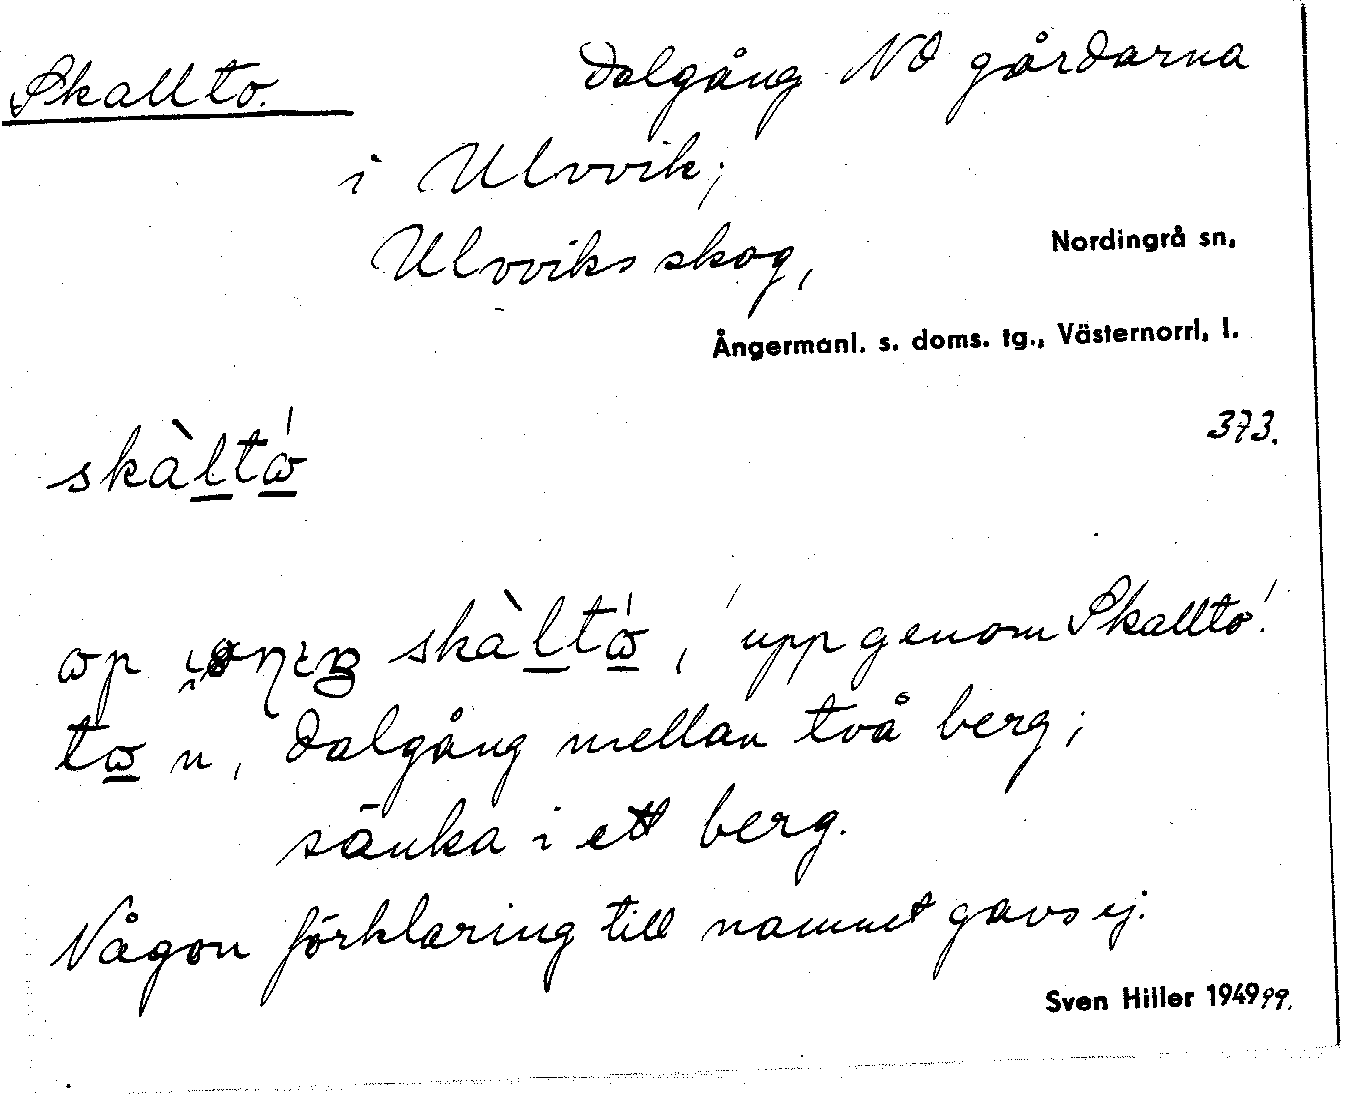 Skallto. dalgång NO gårdarna
i Ulvvik;
Ulvviks skog, Nordingrå sn,
Ångermanl. s. doms. tg., Västernorrl. l.
373.
skàltɷ́
ɷp skàltɷ́, 'upp genom Skallto'.
tɷ n, dalgång mellan två berg;
sänka i ett berg.
Någon förklaring till namnet gavs ej.
Sven Hiller 1949 99.